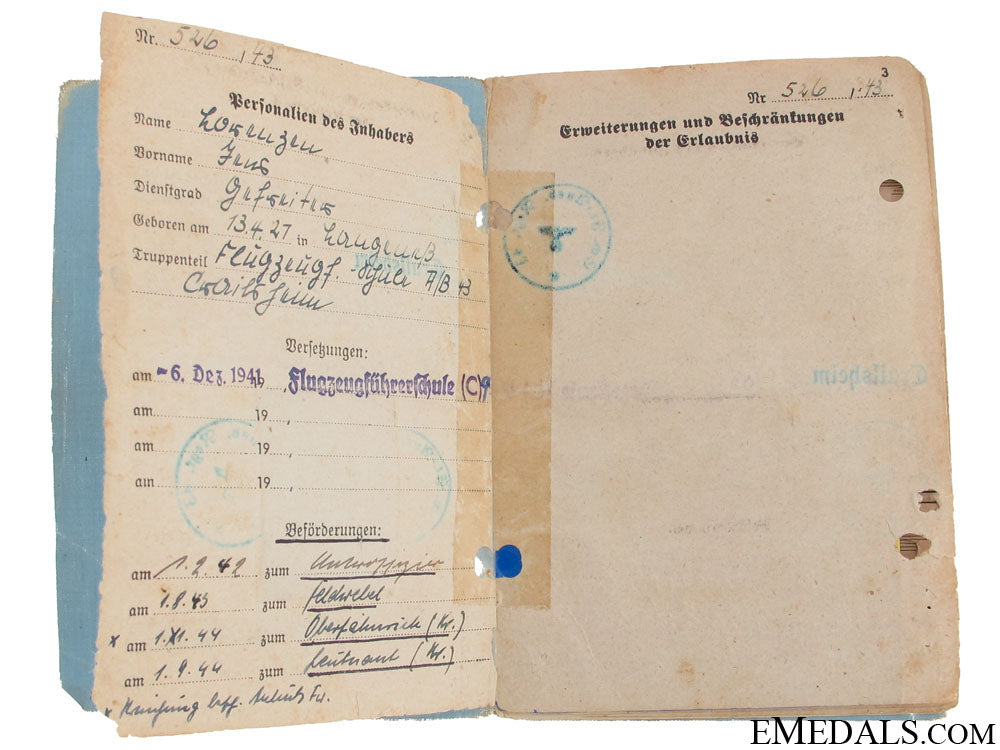 Nr. 526 / 43
Personalien des Inhabers
Name Lorenzen
Vorname Jens
Dienstgrad Gefreiter
Geboren am 13.4.27 in Langeneß
Truppenteil Flugzeugf. Schule A/B 43
Crailsheim
Versetzungen:
am -6. Dez. 1941 19 , Flugzeugführerschule (C)
am 19 ,
am 19 ,
am 19 ,
Beförderungen:
am 1.2.42 zum Unteroffizier
am 1.8.43 zum Feldwebel
x am 1.X1.44 zum Oberfähnrich (Kr.)
am 1.9.44 zum Leutnant (Kr.)
x
3
Nr 526 / 43
Erweiterungen und Beschränkungen
der Erlaubnis
Crailsheim
EMEDALS.COM